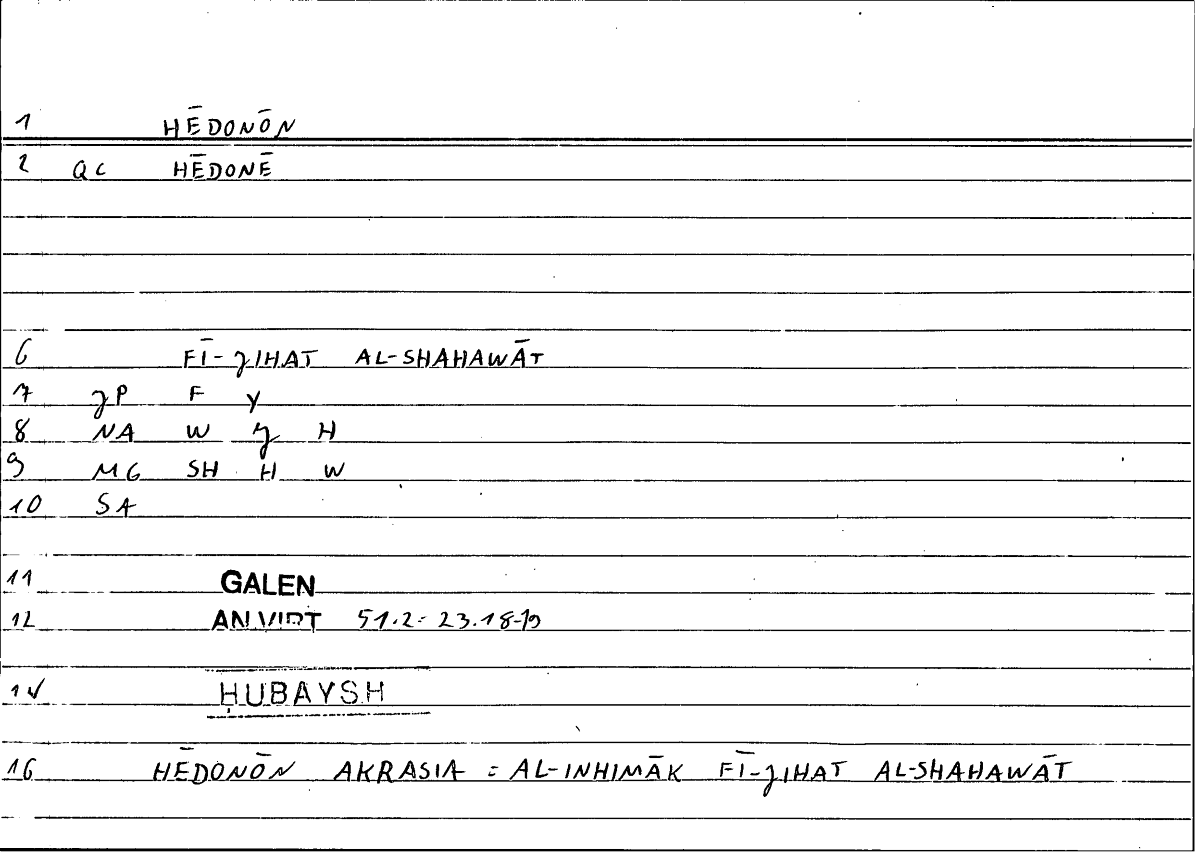 1 HĒDONŌN
2 QC HĒDONĒ
6 FĪ-JIHAT AL-SHAHAWĀT
7 JP F Y
8 NA W J H
9 MG SH H W
10 SA
11 GALEN
12 AN.VIRT 51.2 = 23.18-19
14 ḤUBAYSH
16 HĒDONŌN AKRASIA = AL-INHIMĀK FĪ-JIHAT AL-SHAHAWĀT